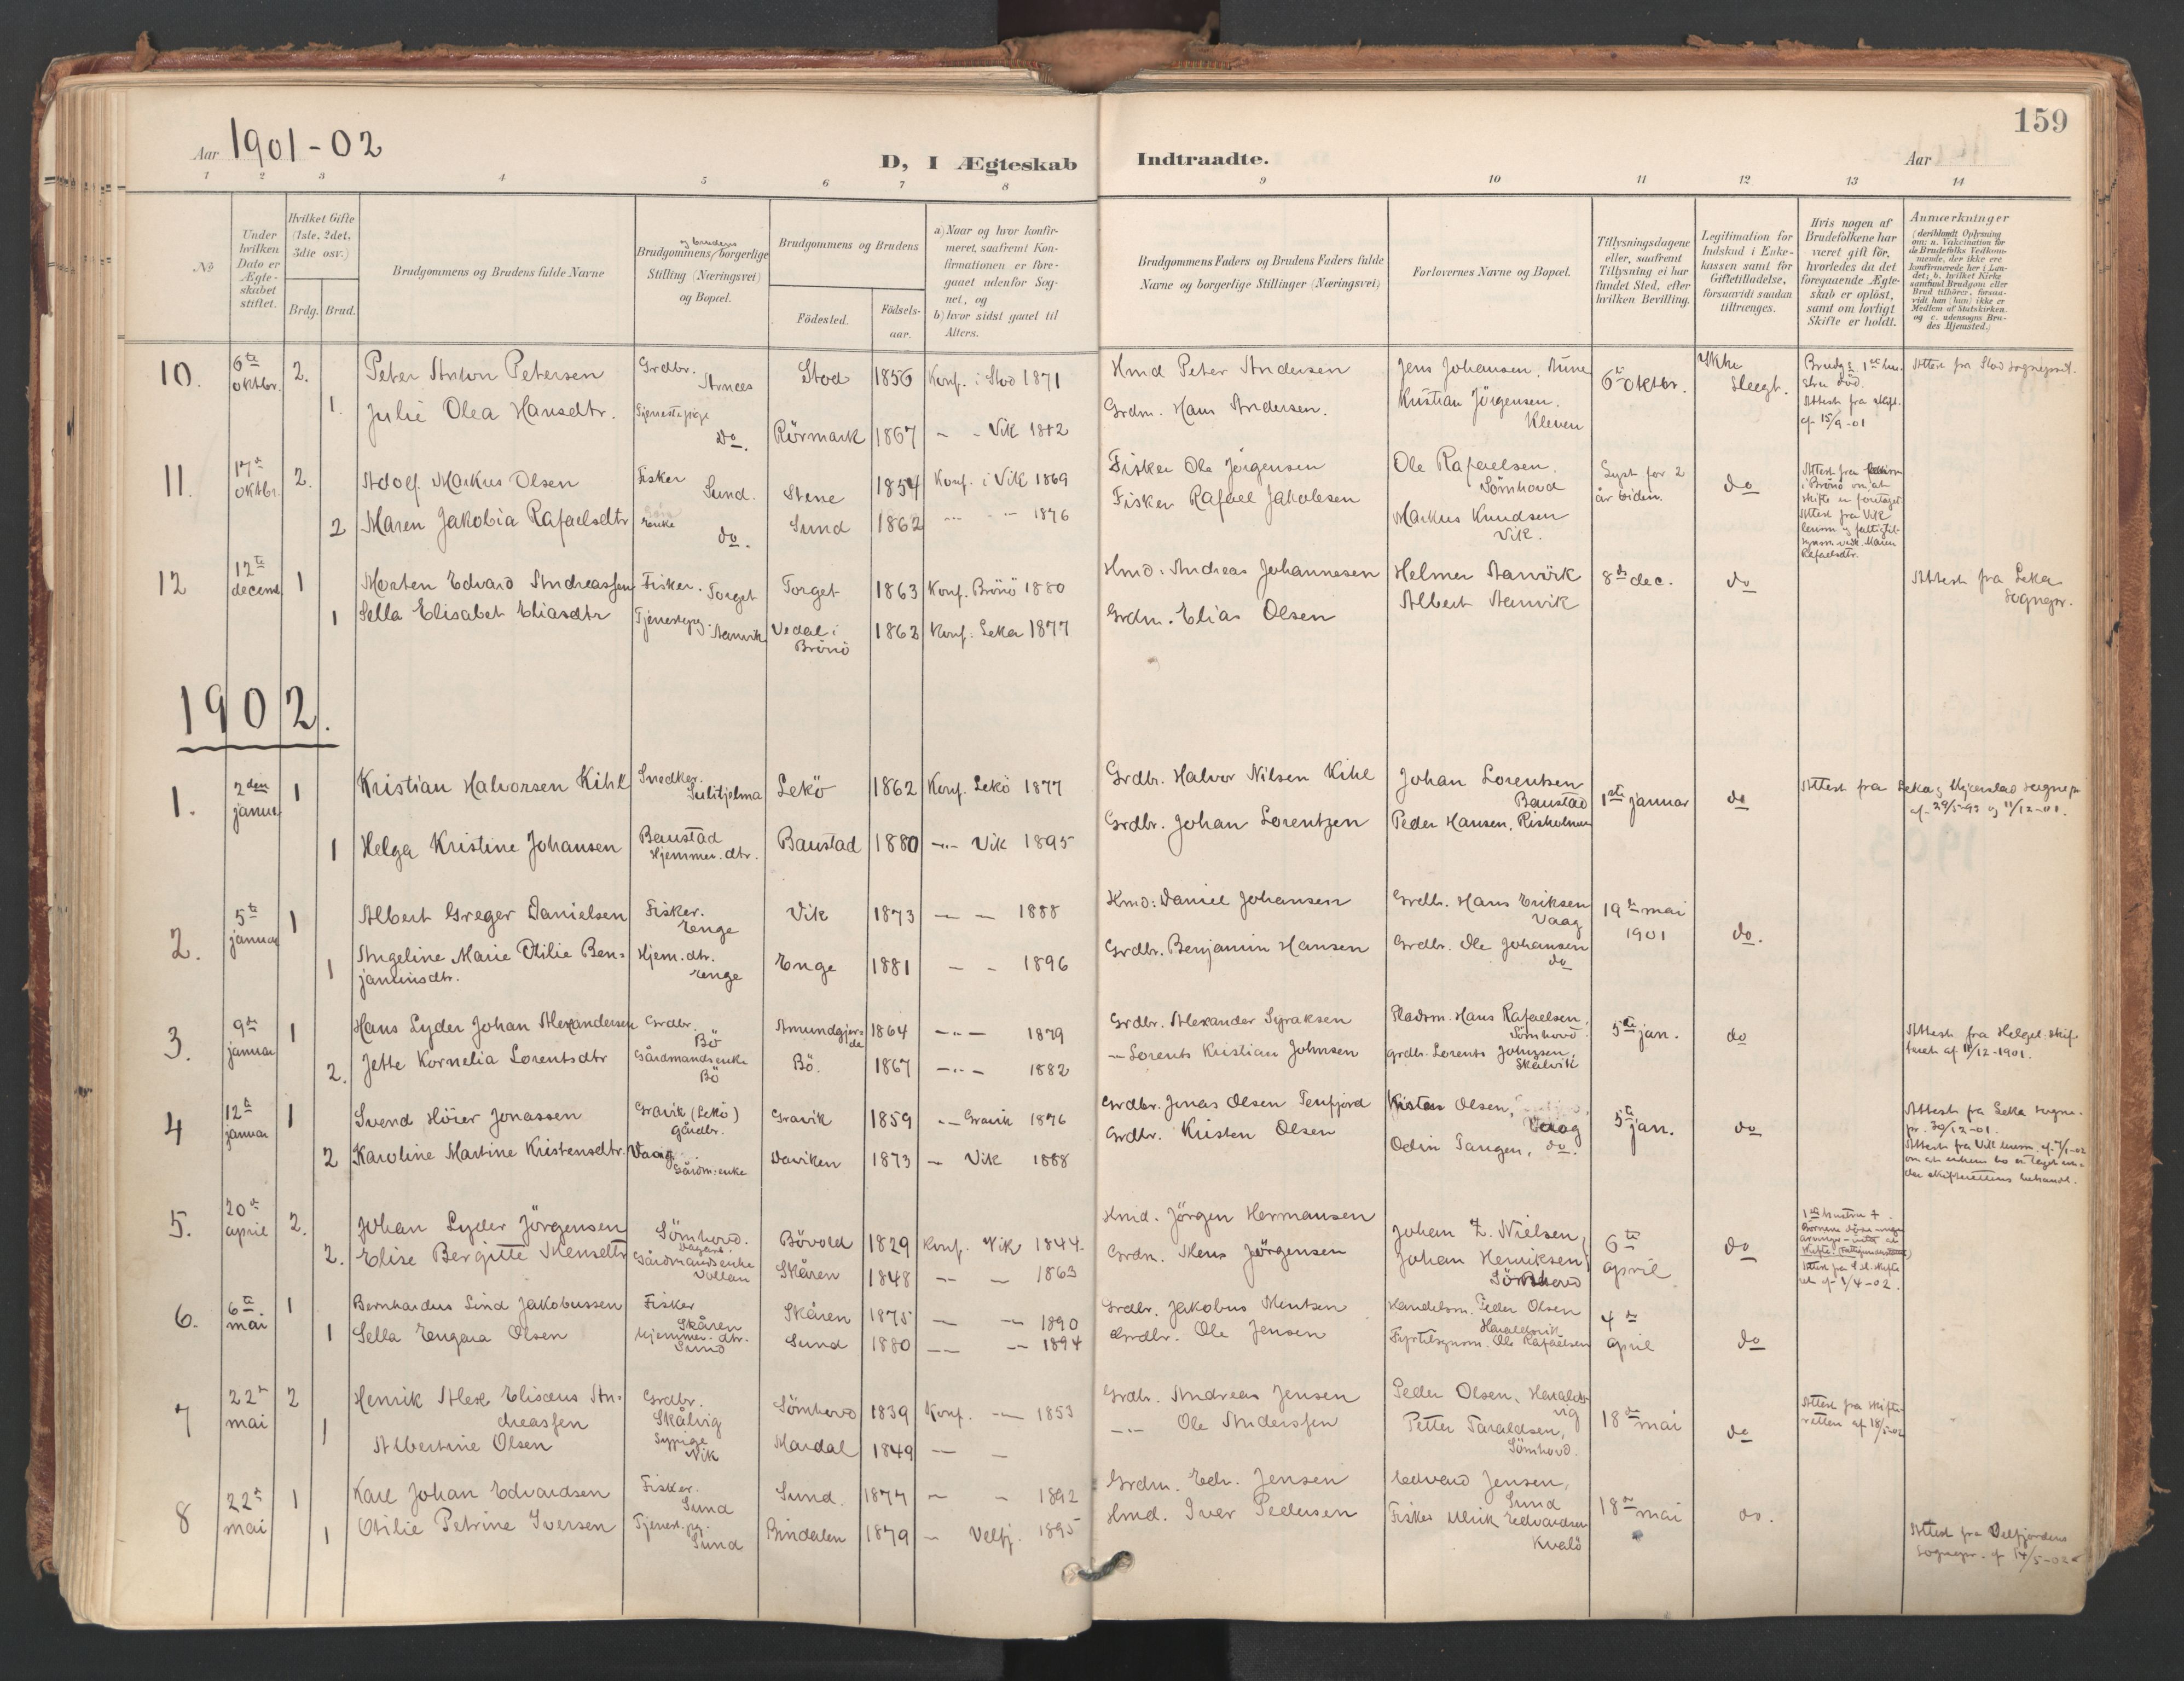 Aar 1901-02
D, I Ægteskab Indtraadte.
Aar
159
1 2 3 4 5 6 7 8 9 10 11 12 13 14
No
Under hvilken Dato er Ægteskabet stiftet.
Hvilket Gifte (1ste, 2det, 3die osv.)
Brdg. Brud.
Brudgommens og Brudens fulde Navne
Brudgommens og brudens borgerlige Stilling (Næringsvei) og Bopæl.
Brudgommens og Brudens
Födested.
Födsels-aar.
a) Naar og hvor konfirmeret, saafremt Konfirmationen er foregaaet udenfor Sognet, og
b) hvor sidst gaaet til Alters.
Brudgommens Faders og Brudens Faders fulde Navne og borgerlige Stillinger (Næringsvei)
Forlovernes Navne og Bopæl.
Tillysningsdagene eller, saafremt Tillysning ei har fundet Sted, efter hvilken Bevilling.
Legitimation for Indskud i Enkekassen samt for Giftetilladelse, forsaavidt saadan tiltrænges.
Hvis nogen af Brudefolkene har været gift för, hvorledes da det foregaaende Ægteskab er oplöst, samt om lovligt Skifte er holdt.
Anmærkninger (deriblandt Oplysning om: a. Vakcination för de Brudefolks Vedkommende, der ikke ere konfirmerede her i Landet; b. hvilket Kirkesamfund Brudgom eller Brud tilhörer, forsaavidt han (hun) ikke er Medlem af Statskirken, og c. udensogns Brudes Hjemsted.)
10. 6te oktbr. 2. Peter Anton Petersen Grdbr. Arnees Stod 1856 Konf. i Stod 1871 Hmd Peter Andersen Jens Johansen, Aune 6te oktbr. Ikke slegt. Brudg.s 1ste hustru död. Attest fra skift. af 15/9-01 Attest fra Stod sognepræst.
1. Julie Olea Hansdtr. Tjenestepige do. Rörmark 1867 - - Vik 1882 Grdm. Hans Andersen. Kristian Jörgensen. Kleven
11. 17de oktbr. 2. Adolf Markus Olsen Fisker Sund. Stene 1854 Konf. i Vik 1869 Fisker Ole Jörgensen Ole Rafaelsen. Sömhovd Lyst for 2 år siden. do Attest fra
i Brönö om at skifte er foretaget. Attest fra Vik lensm. og fattigtilsynsm. vedk. Maren Rafaelsdtr.
2 Maren Jakobia Rafaelsdtr enke do. Sund 1862 - - 1876 Fisker Rafael Jakobsen Markus Knudsen Vik.
12 12te decemb 1 Morten Edvard Andreassen Fisker. Torget Torget 1863 Konf. Brönö 1880 Hmd. Andreas Johannesen Helmer Aarvik 8de dec. do Attest fra Leka Sognepr.
1 Sella Elisabet Eliasdtr Tjenestepg. Aarvik Vedal i Brönö 1862 Konf. Leka 1877 Grdm. Elias Olsen Albert Aarvik
1902.
1. 2den januar 1 Kristian Halvorsen Kihl Snedker. Sulitjelma Lekö 1862 Konf. Lekö 1877 Grdbr. Halvor Nilsen Kihl Johan Lorentsen Baustad 1ste januar do Attest fra Leka og
sognepr af 29/5-93 og 11/12-01.
1 Helga Kristine Johansen Baustad Hjemmev. dtr. Baustad 1880 -"- Vik 1895 Grdbr. Johan Lorentzen Peder Hansen, Risholmen
2. 5te januar 1 Albert Greger Danielsen Fisker. Enge Vik 1873 - - 1888 Hmd: Daniel Johansen Grdb. Hans Eriksen Vaag 19de mai 1901 do.
1 Angeline Marie Otilie Benjaminsdtr. Hjem. dtr. Enge Enge 1881 - - 1896 Grdbr. Benjamin Hansen Grdbr. Ole Johansen do
3. 9de januar 1 Hans Lyder Johan Alexandersen Grdbr. Bö Amundgjerde 1864 -"- 1879 Grdbr. Alexander Syraksen Pladsm. Hans Rafaelsen, Sömhovd 5te jan. do Attest fra Helgel. skifteret af 11/12-1901.
2. Jette Kornelia Lorentsdtr Gårdmandsenke Bö Bö. 1867 -"- 1882 -"- Lorents Kristian Johnsen grdb. Lorents Johnsen, Skålvik
4 12te januar 1 Svend Höier Jonassen Gravik (Lekö) Gårdbr. Gravik 1859 -"- Gravik 1876 Grdbr. Jonas Olsen Terfjord Kristen Olsen, Vaag 5te jan. do Attest fra Leka sognepr. 30/12-01. Attest fra Vik lensm. af 7/1-02 om at enkens bo er taget under skifterettens behandl.
2 Karoline Martine Kristensdtr. Vaag. Gårdm:enke Vaviken 1873 - Vik 1888 Grdbr. Kristen Olsen Odin Tangen, do.
5. 20de april 2. Johan Lyder Jörgensen Sömhovd. Bövold 1829 Konf. Vik 1844. Hmd. Jörgen Hermansen Johan Z. Nielsen, 6te april do 1ste hustru †.
2. Elise Bergitte Mensdtr Gårdmandsenke Vollan Skåren 1848 -"- - 1863 Grdm. Mens Jörgensen Johan Henriksen, Sömhovd
6. 6te mai 1 Bernhardus Lind Jakobussen Fisker Skåren Skåren 1875 - - 1890 Grdbr. Jakobus Mentsen Handelsm. Peder Olsen Haraldsvik 4de april do
1 Sella Engana Olsen Hjemmev. dtr. Sund Sund 1880 - - 1894 Grdbr. Ole Jensen Fyrtilsynsm. Ole Rafaelsen
7 22de mai 2 Henrik Alex Eliseus Andreassen Grdbr. Skålvig Sömhovd 1839 Konf. - 1853 Grdb. Andreas Jensen Peder Olsen, Haraldsvig 18de mai do Attest fra skifteretten af 18/5-02
1 Albertine Olsen Sypige Vik Mardal 1849 - - -"- Ole Anderssen Petter Taraldsen, Sömhovd.
8 22de mai 1 Karl Johan Edvardsen Fisker. Sund Sund. 1877 - - 1892 Grdm. Edv. Jensen Edvard Jensen, Sund 18de mai do.
1 Otilie Petrine Iversen Tjenest.pg. Sund Bindalen 1879 - Velfj. 1895 Hmd. Iver Pedersen Fisker Ulrik Edvardsen Kvalö Attest fra Velfjordens Sognepr. af 14/5-02